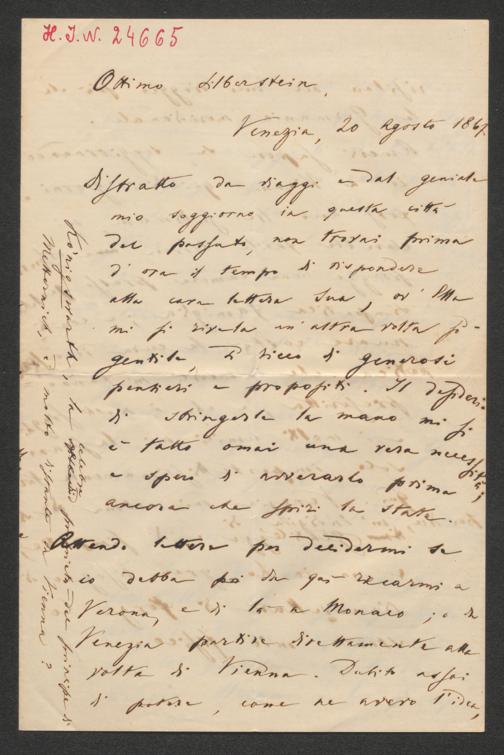 H. I. N. 24665
Ottimo Silberstein,
Venezia, 20 agosto 186
Distratto da viaggi e dal geniale
mio soggiorno in questa città
del passato, non trovai prima
d'ora il tempo di rispondere
alla cara lettera Sua, ov' Ella
mi si rivela un' altra volta sì
gentile, e ricco di generosi
pensieri e propositi. Il desiderio
di stringerle la mano mi si
è fatto omai una vera necessità,
e spero d' avverarlo prima
ancora che spiri la state.
Attendo lettere per decidermi se
io debba poi da qui recarmi a
Verona, e di là a Monaco; o da
Venezia partire direttamente alla
volta di Vienna. Dubito assai
di potere, come ne avevo l'idea,
Königswarth, la celebre proprietà del principe di
Metternich, è molto distante da Vienna?